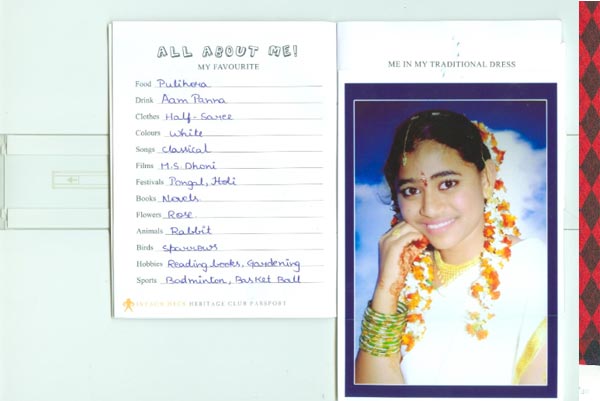 ALL ABOUT ME!
MY FAVOURITE
Food Pulihora
Drink Aam Panna
Clothes Half-Saree
Colours White
Songs Classical
Films M.S. Dhoni
Festivals Pongal, Holi
Books Novels
Flowers Rose
Animals Rabbit
Birds Sparrows
Hobbies Reading books, Gardening
Sports Badminton, Basket Ball
HERITAGE CLUB PASSPORT
ME IN MY TRADITIONAL DRESS